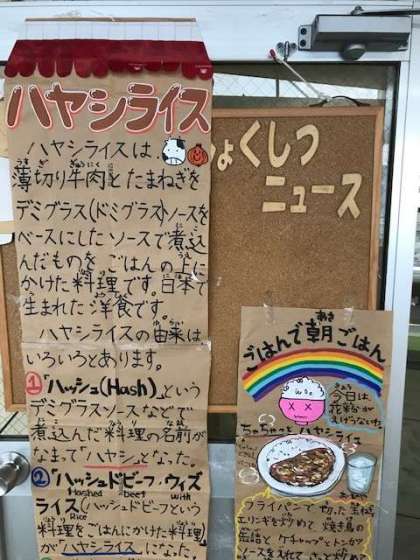 ハヤシライス
ハヤシライスは、
薄切り牛肉とたまねぎを
デミグラス(ドミグラス)ソースを
ベースにしたソースで煮込
んだものを ごはんの上に
かけた料理です。日本で
生まれた洋食です。
ハヤシライスの由来は
いろいろとあります。
1 「ハッシュ(Hash)」という
デミグラスソースなどで
煮込んだ料理の名前が
なまって「ハヤシ」となった。
2 「ハッシュドビーフ・ウィズ
Hashed beef with
ライス(ハッシュドビーフという
Rice
料理をごはんにかけた料理)
が「ハヤシライス」になった
ょくしつ
ニュース
ごはんで朝ごはん
今日は、
花粉が
ちゃちゃっと ハヤシライス
フライパンで切った玉ねぎ
エリンギを炒めて、焼き鳥の
缶詰と ケチャップとトンカツ